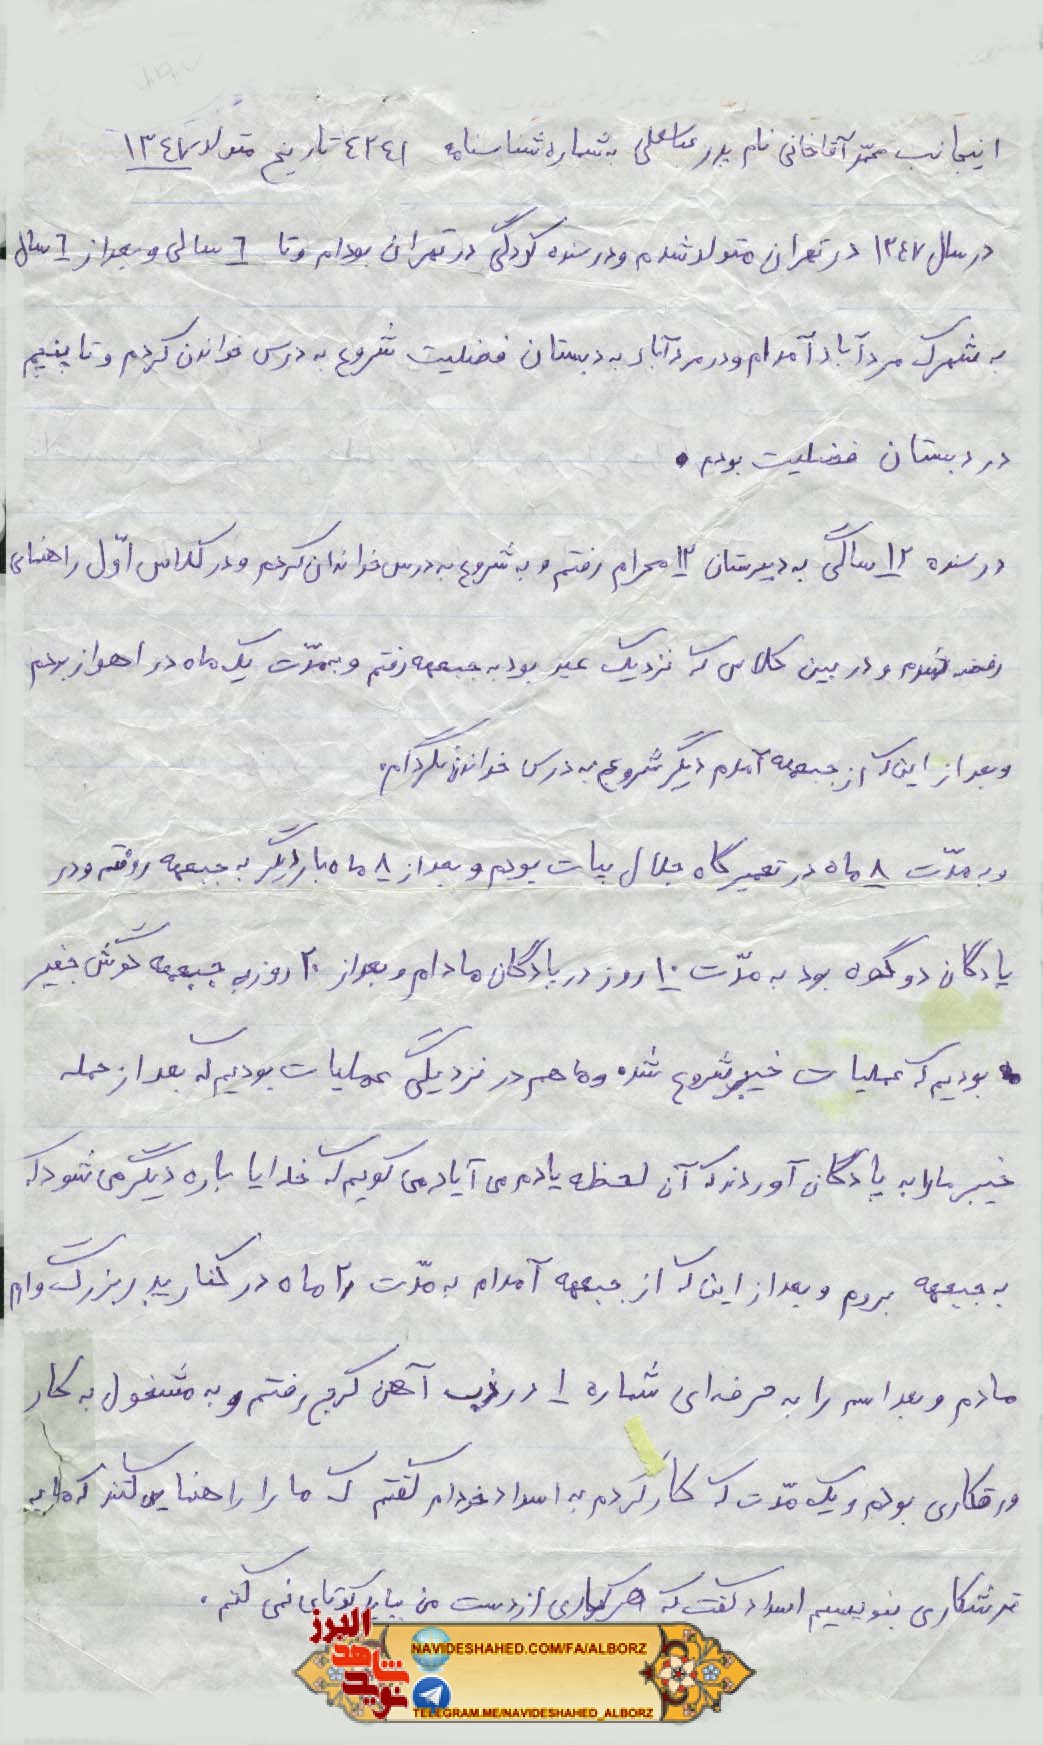 اینجانب محمّد آقاخانی نام پدر عباسعلی به شماره شناسنامه ٤٢٤١ تاریخ متولد ١٣٤٧
در سال ١٣٤٧ در تهران متولد شدم و در سنده کودکی در تهران بودام و تا ٦ سالی و بعد از ٦ سال
به شهرک مردآباد آمدام و در مردآباد به دبستان فضلیت شروع به درس خواندن کردم و تا پنجم
در دبستان فضلیت بودم .
در سنده ١٢ سالگی به دبیرستان ١٢ محرام رفتم و به شروع به درس خواندان کردم و در کلاس اوّل راهنمای
رفضه شدم و در بین کلاس که نزدیک عید بود به جبعهه رفتم و بمدّت یک ماه در اهواز بودم
و بعد از این که از جبعهه آمدم دیگر شروع به درس خواندن نکردام.
و به مدّت ٨ ماه در تعمیرگاه جلال بیات بودم و بعد از ٨ ماه بار دیگر به جبعهه روفتم و در
پادگان دوکوه بود به مدّت ١٠ روز در پادگان مادام و بعد از ٢٠ روز به جبعهه کوش جفیر
بودیم که عملیات خیبر شروع شده و ما هم در نزدیکی عملیات بودیم که بعد از حمله
خیبر ما را به پادگان آوردند که آن لحظه یادم می آیاد می گویم که خدایا باره دیگر می شود که
به جبعهه بروم و بعد از این که از جبعهه آمدام به مدّت ٢ ماه در کنار پدر بزرگ وام
مادم و بعد اسم را به حرفه‌ای شماره ١ در ذوب آهن کرج رفتم و به مشغول به کار
ورقکاری بودم و یک مدّت که کار کردم به اسداد خودام گفتم که ما را راهنمایی کنند که ما به
ترشکاری بنویسیم اسداد گفت که هر کاری از دست من بیاید کوتای نمی کنم .
البرز
شاهد
نوید
NAVIDESHAHED.COM/FA/ALBORZ
TELEGRAM.ME/NAVIDESHAHED_ALBORZ